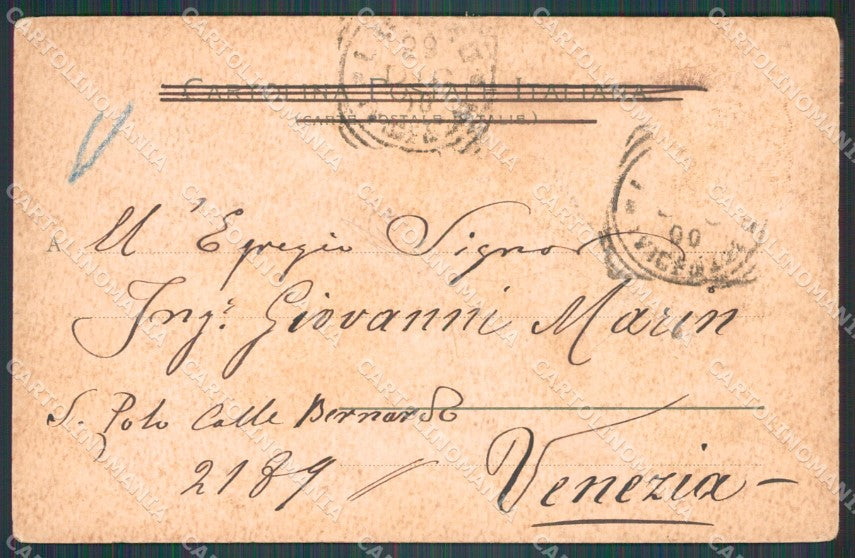 CARTOLINA POSTALE ITALIANA
(CARTE POSTALE D'ITALIE)
A
All' Egregio Signor
Ingr. Giovanni Marin
S. Polo Calle Bernardo
2189
Venezia
VICENZA
00
CARTOLINOMANIA